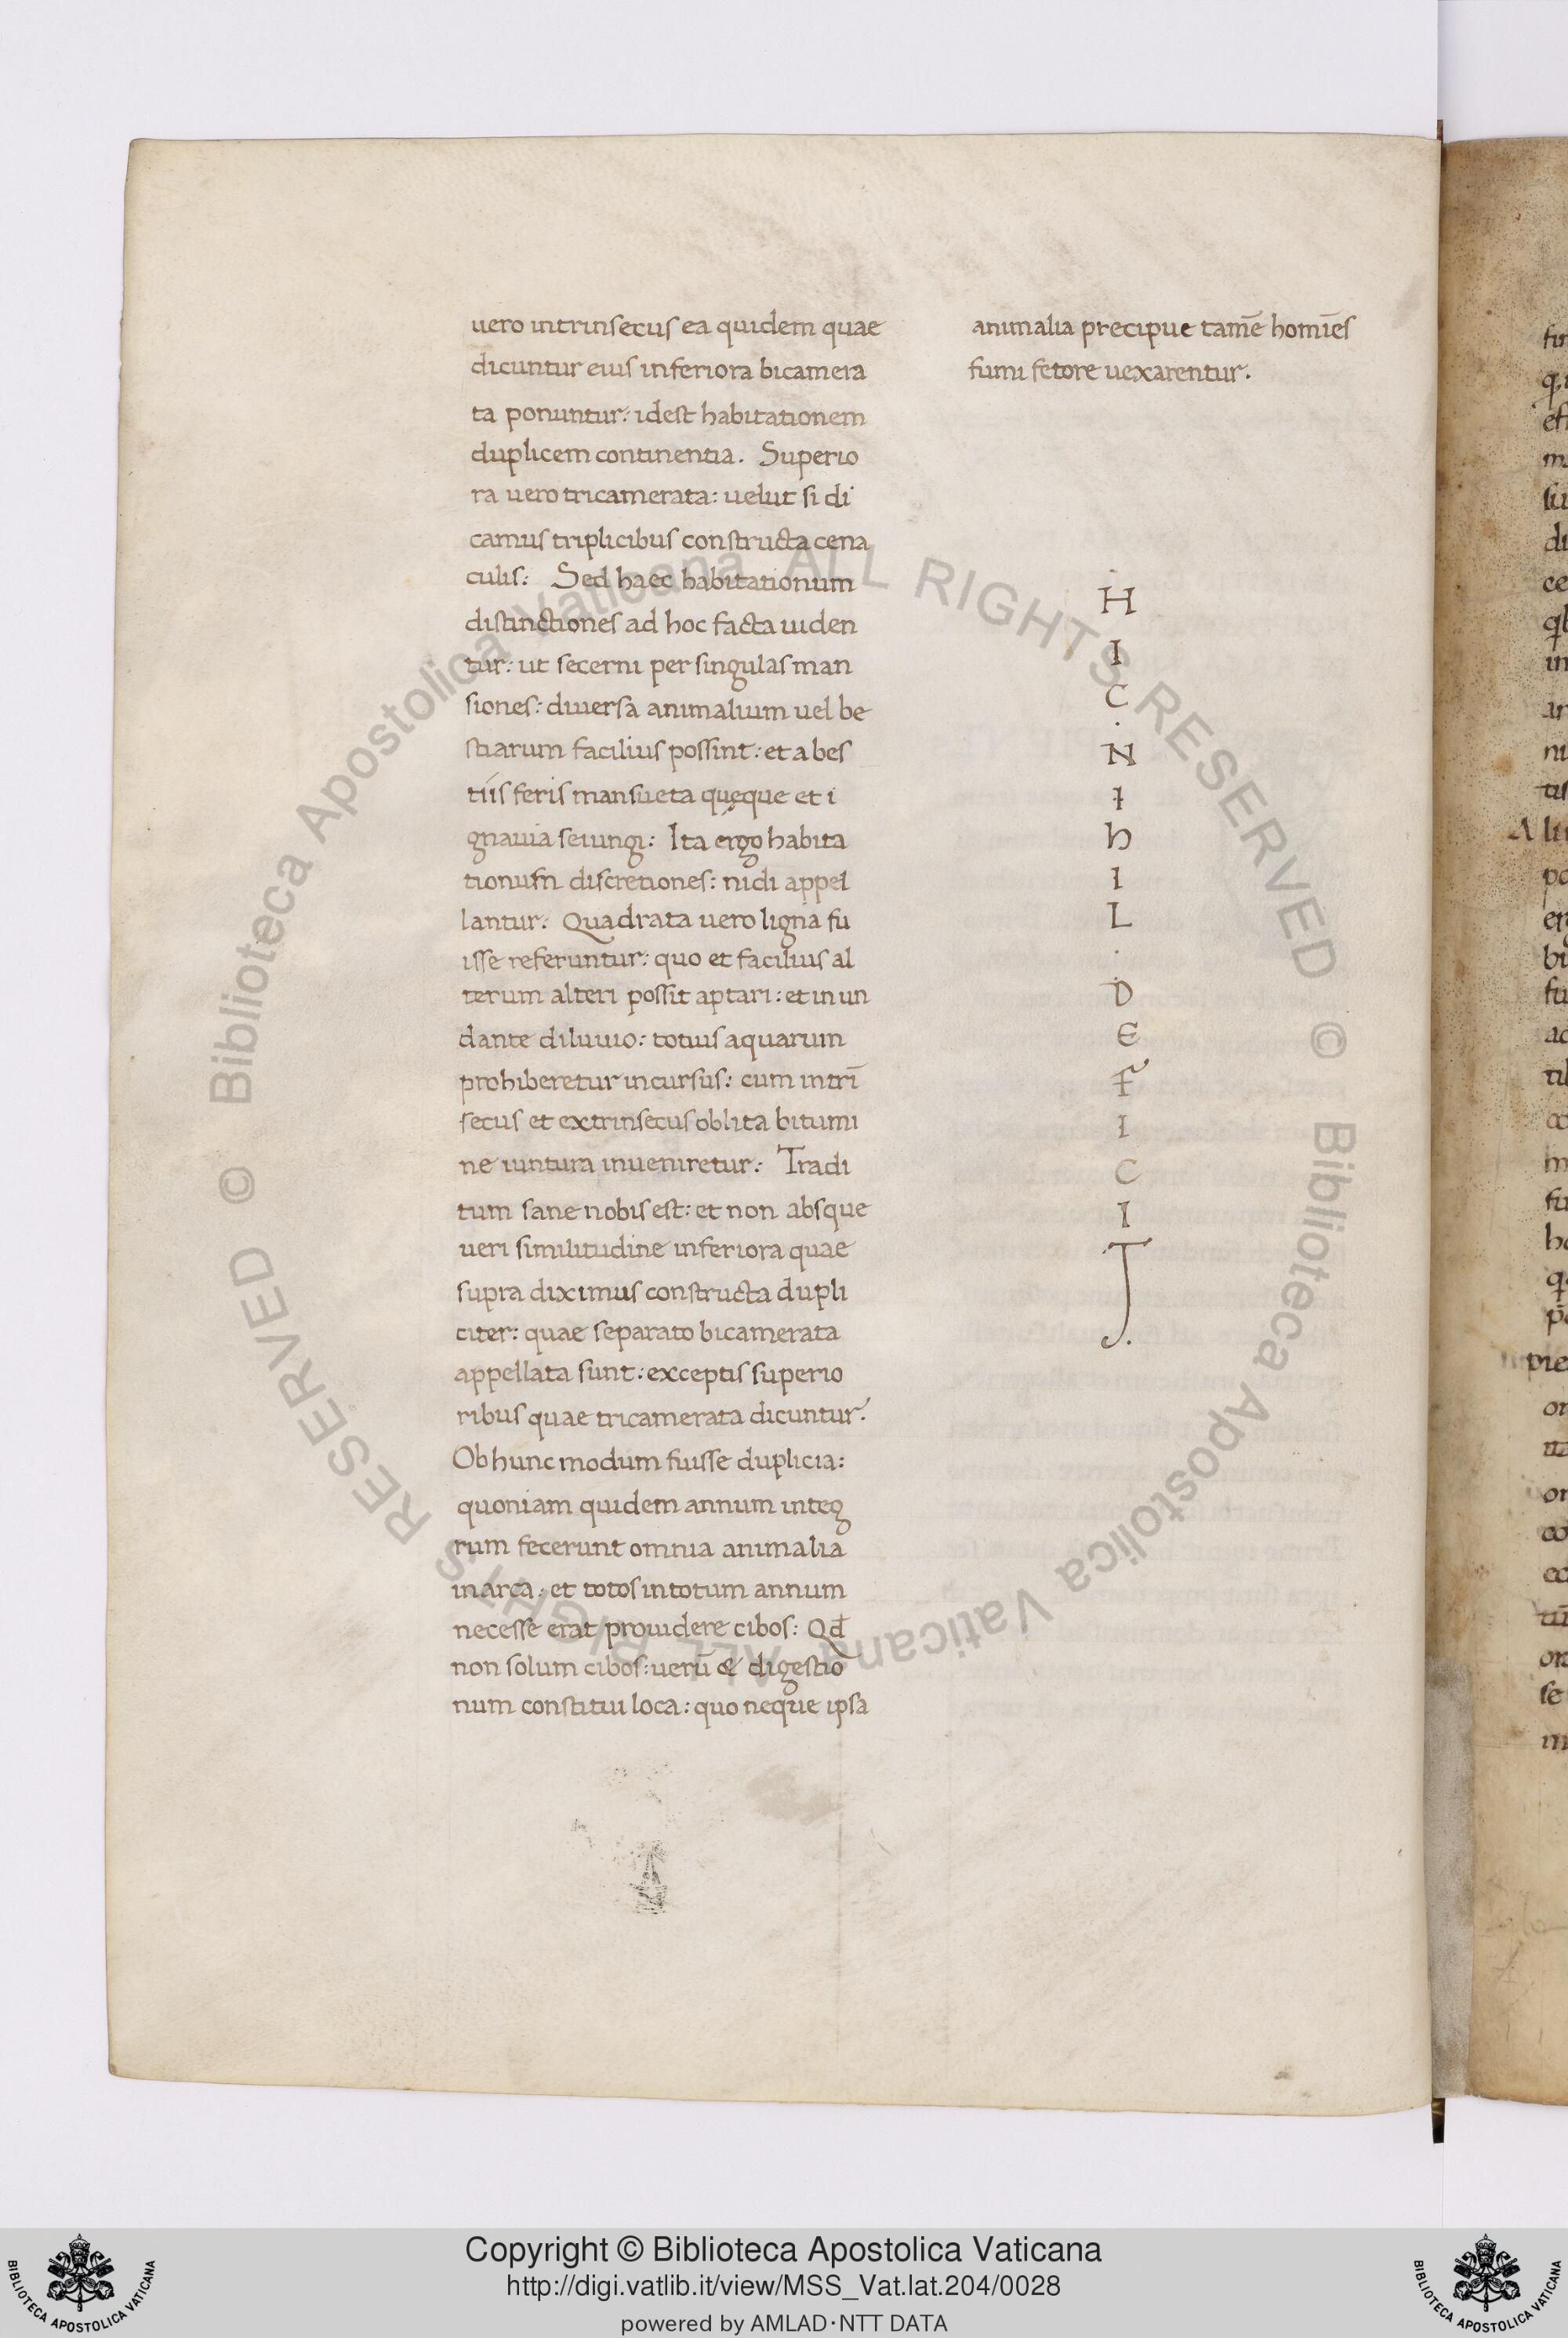 uero intrinsecus ea quidem quae
dicuntur eius inferiora bicamera
ta ponuntur: idest habitationem
duplicem continentia. Superio
ra uero tricamerata: uelut si di
camus triplicibus constructa cena
culis: Sed haec habitationum
distinctiones ad hoc facta uiden
tur: ut secerni per singulas man
siones: diuersa animalium uel be
stiarum facilius possint: et a bes
tiis feris mansueta queque et i
gnauia seiungi: Ita ergo habita
tionum discretiones: nidi appel
lantur: Quadrata uero ligna fu
isse referuntur: quo et facilius al
terum alteri possit aptari: et in un
dante diluuio: totius aquarum
prohiberetur incursus: cum intrī
secus et extrinsecus oblita bitumi
ne iuntura inueniretur: Tradi
tum sane nobis est: et non absque
ueri similitudine inferiora quae
supra diximus constructa dupli
citer: quae separato bicamerata
appellata sunt: exceptis superio
ribus quae tricamerata dicuntur:
Ob hunc modum fuisse duplicia:
quoniam quidem annum integ
rum fecerunt omnia animalia
in arca: et totos in totum annum
necesse erat prouidere cibos: Qd̄
non solum cibos: uerū & digestio
num constitui loca: quo neque ipsa
animalia precipue tamē homīes
fumi fetore uexarentur.
H
I
C
.
N
I
h
I
L
.
D
E
F
I
C
I
T.
© Biblioteca Apostolica Vaticana ALL RIGHTS RESERVED
© Biblioteca Apostolica Vaticana ALL RIGHTS RESERVED
Copyright © Biblioteca Apostolica Vaticana
http://digi.vatlib.it/view/MSS_Vat.lat.204/0028
powered by AMLAD·NTT DATA
BIBLIOTECA APOSTOLICA VATICANA
BIBLIOTECA APOSTOLICA VATICANA